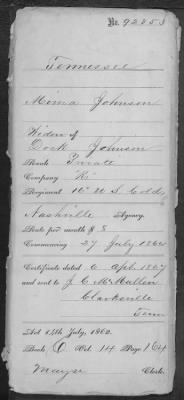 No. 92853
Tennessee
Mima Johnson
Widow of
Dock Johnson
Rank Private
Company "K"
Regiment 16" U S Cold
Nashville Agency.
Rate per month $ 8
Commencing 27 July 1864
Certificate dated 6 Apl. 1867
and sent to J C McMullen
Clarksville
Tenn
Act 14th July, 1862.
Book Vol. 14 Page 164
Mayse Clerk.